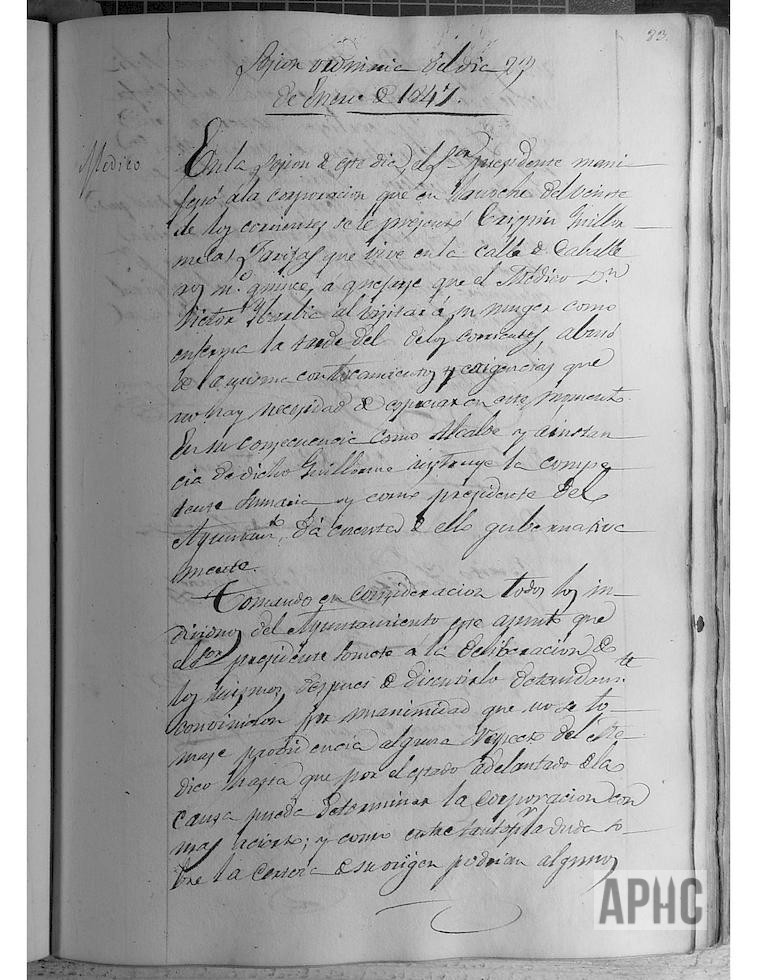 83.
Sesion ordinaria del dia 23
de Enero de 1847.
Medico
En la Sesion de este dia, el Sor. presidente mani-
festó á la corporacion que en la noche del veinte
de los corrientes se le presentó Crispin Guillor
me las Parifas que vive en la calle de Caballe
ros nº. quince, a quejarse que el Médico Dn.
Victor al visitar á su muger como
enferma la tarde del de los corrientes, abusó
de la misma con tocamientos y exigencias que
no hay necesidad de espresar en este momento.
En su consecuencia como Alcalde y a instan
cia de dicho Guillorme instruye la compe
tente sumaria y como presidente del
Ayuntamto. dá cuenta de ello gubernativa
mente.
Tomando en consideracion todos los in-
dividuos del Ayuntamiento este asunto que
el Sor. presidente somete á la deliberacion de
los mismos, despues de discutirlo detenidamte.
convinieron por unanimidad que no se to-
mase providencia alguna respecto del Me-
dico hasta que por el estado adelantado de la
causa pueda determinar la corporacion con
mas acierto; y como entre tanto pr. la duda so-
bre la certeza de su origen podrian algunos
APHC